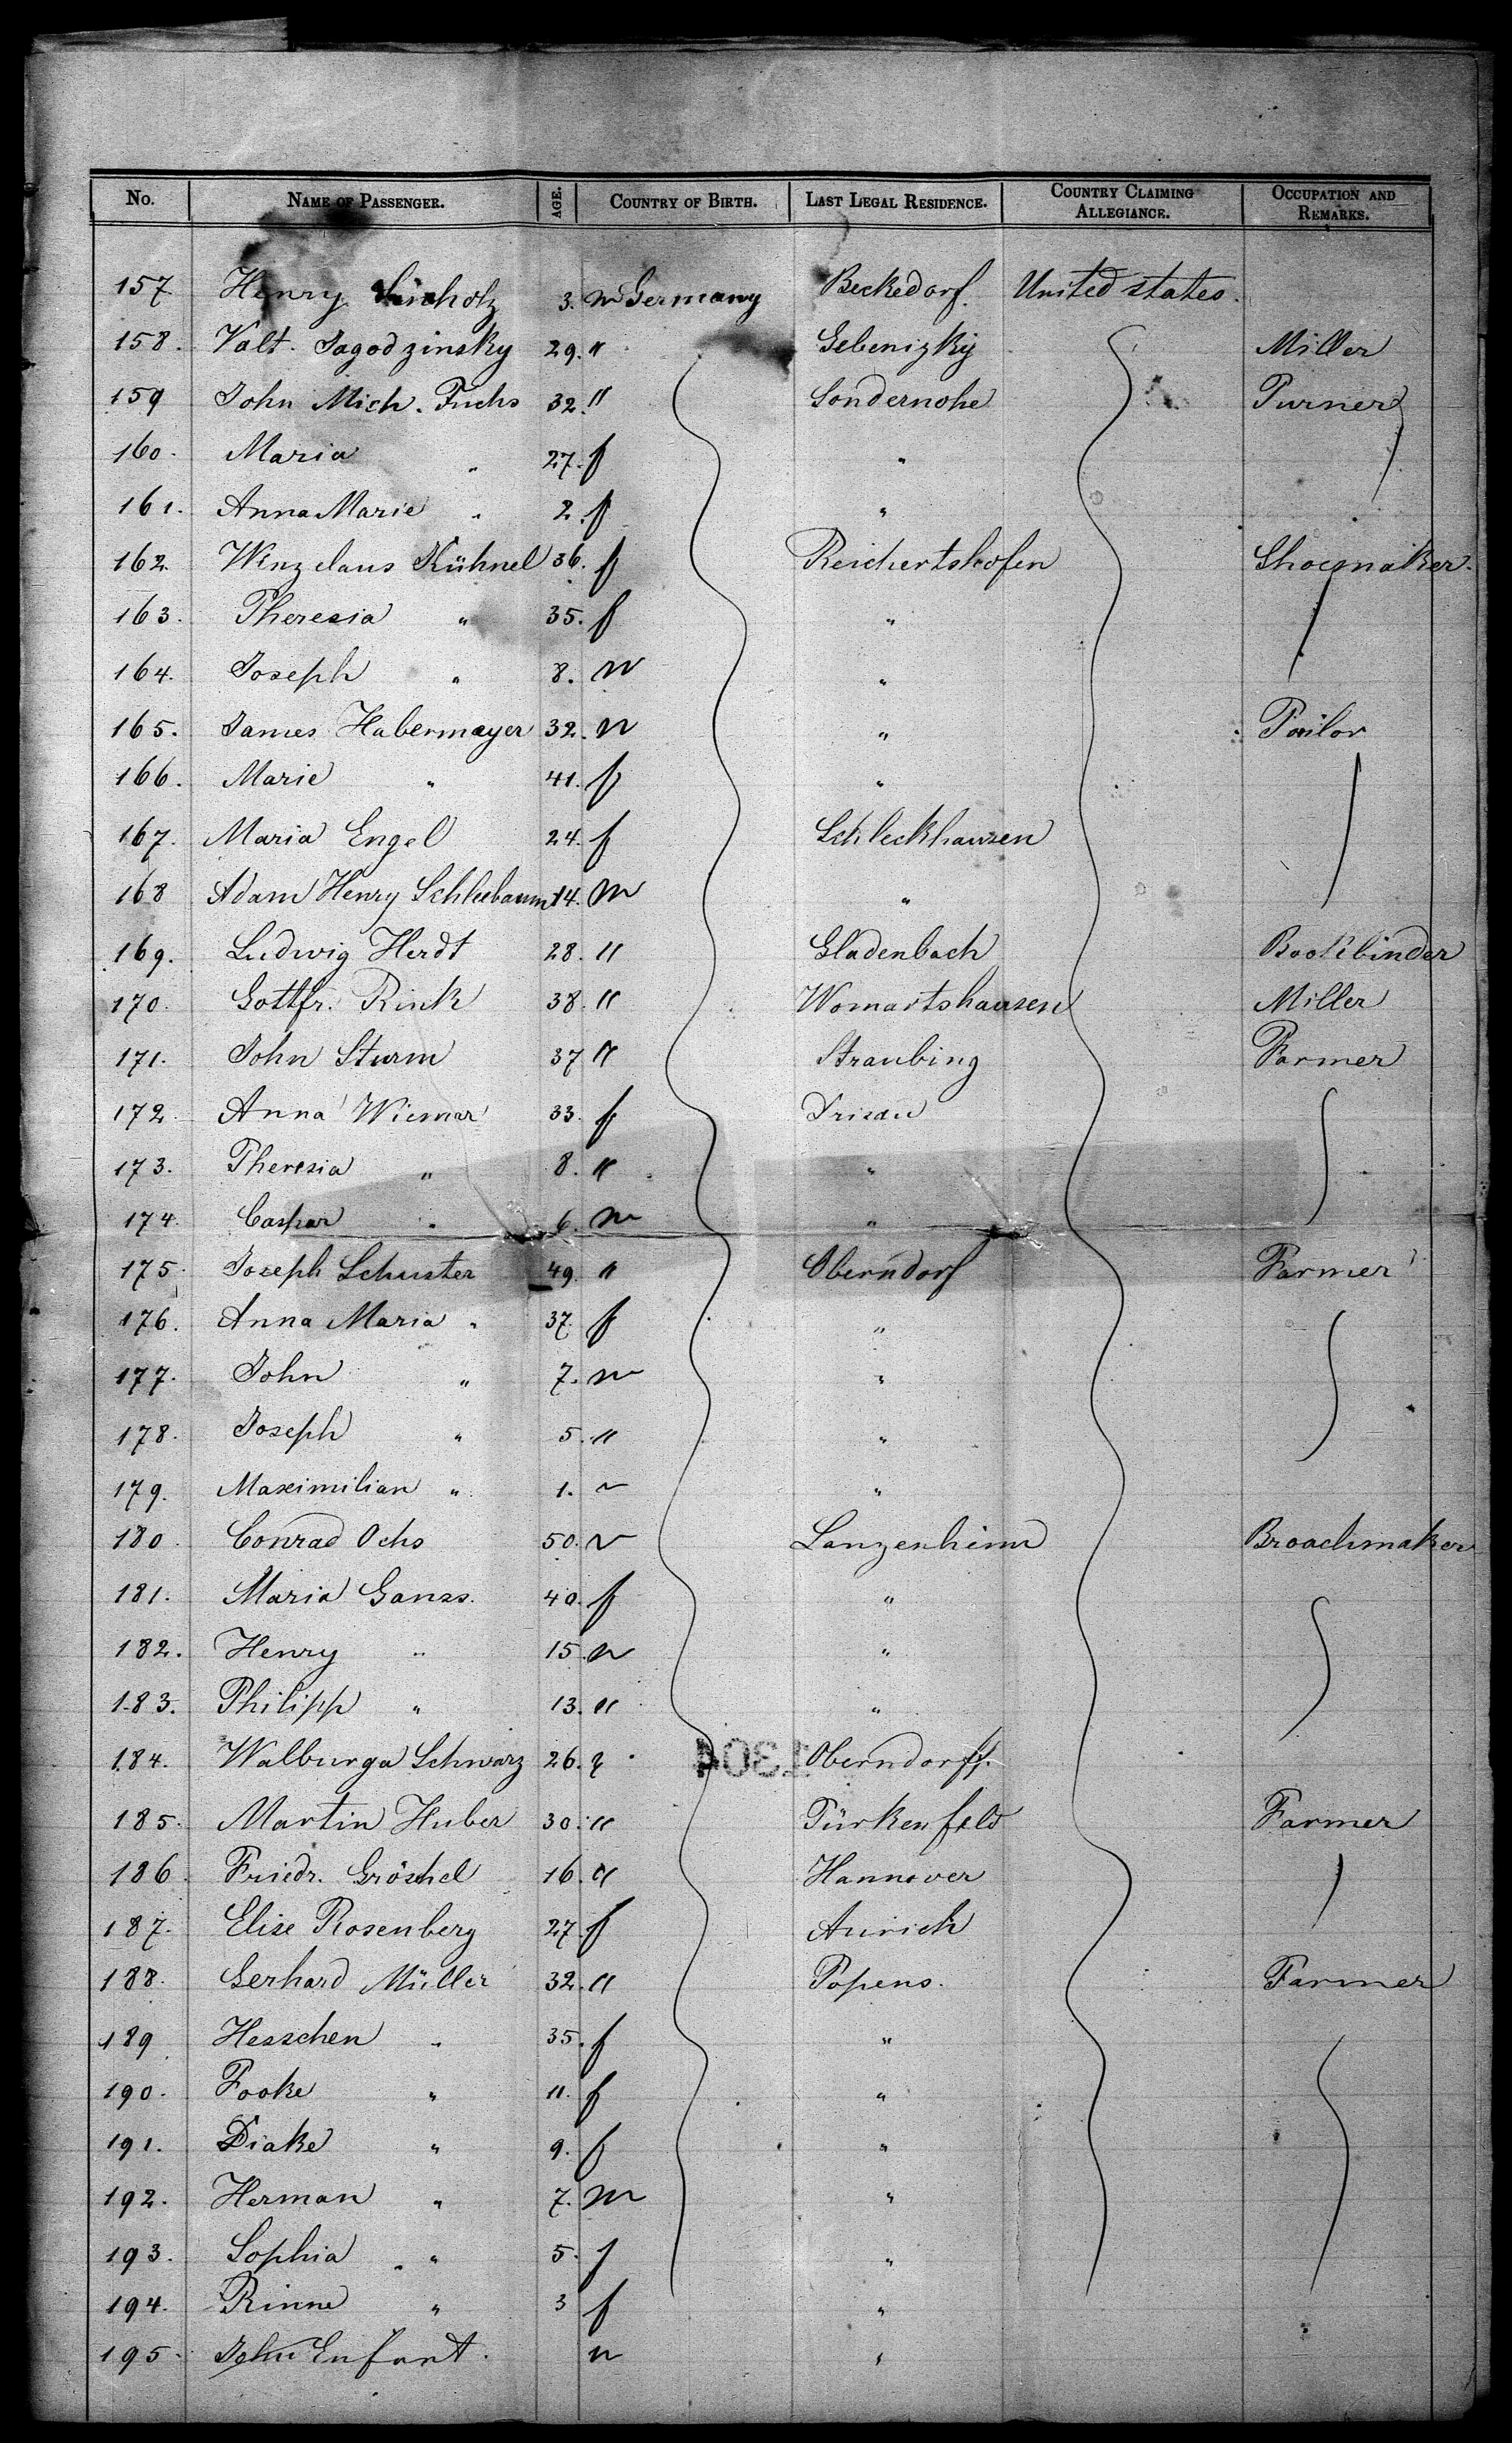 No. NAME OF PASSENGER. AGE. COUNTRY OF BIRTH. LAST LEGAL RESIDENCE. COUNTRY CLAIMING ALLEGIANCE. OCCUPATION AND REMARKS.
157 Henry 3. m Germany Beckedorf. United states.
158. Valt. Jagodzinsky 29. " Gebenizky Miller
159 John Mich. Fuchs 32. " Sondernohe Turner
160. Maria " 27. f "
161. Anna Marie " 2. f "
162. Winzelaus Kühnel 36. f Reichertshofen Shoemaker.
163. Theresia " 35. f "
164. Joseph " 8. m "
165. James Habermayer 32. m " Tailor
166. Marie " 41. f "
167. Maria Engel 24. f Schleckhausen
168 Adam Henry Schleebaum 14. m "
169. Ludwig Herdt 28. " Gladenbach Bookbinder
170. Gottfr. Rink 38. " Womartshausen Miller
171. John Sturm 37 " Straubing Farmer
172 Anna Wiemar 33. f
173. Theresia " 8. " "
174. Caspar " 6. m "
175. Joseph Schuster 49. " Oberndorf Farmer
176. Anna Maria " 37. f "
177. John " 7. m "
178. Joseph " 5. " "
179. Maximilian " 1. "
180. Conrad Ochs 50. Lanzenheim Broachmaker
181. Maria Ganss. 40. f "
182. Henry " 15. m "
183. Philipp " 13. " "
184. Walburga Schwarz 26. Oberndorff.
1304
185. Martin Huber 30. " Türkenfeld Farmer
186. Friedr. Gröschel 16. " Hannover
187. Elise Rosenberg 27. f Aurich
188. Gerhard Müller 32. " Popens. Farmer
189 Hesschen " 35. f "
190. Fooke " 11. f "
191. Diake " 9. f "
192. Herman " 7. m "
193. Sophia " 5. f "
194. Rinne " 3 f "
195. John Enfant. m "